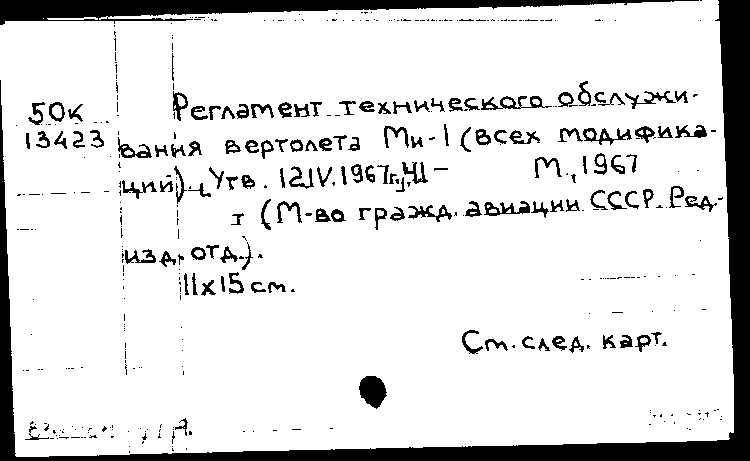 50к
13423
Регламент технического обслужи-
вания вертолета Ми-1 (всех модифика-
ций). Утв. 12.IV.1967г. Ч.I- М., 1967
т (М-во гражд. авиации СССР. Ред.-
изд. отд.).
11х15 см.
См. след. карт.